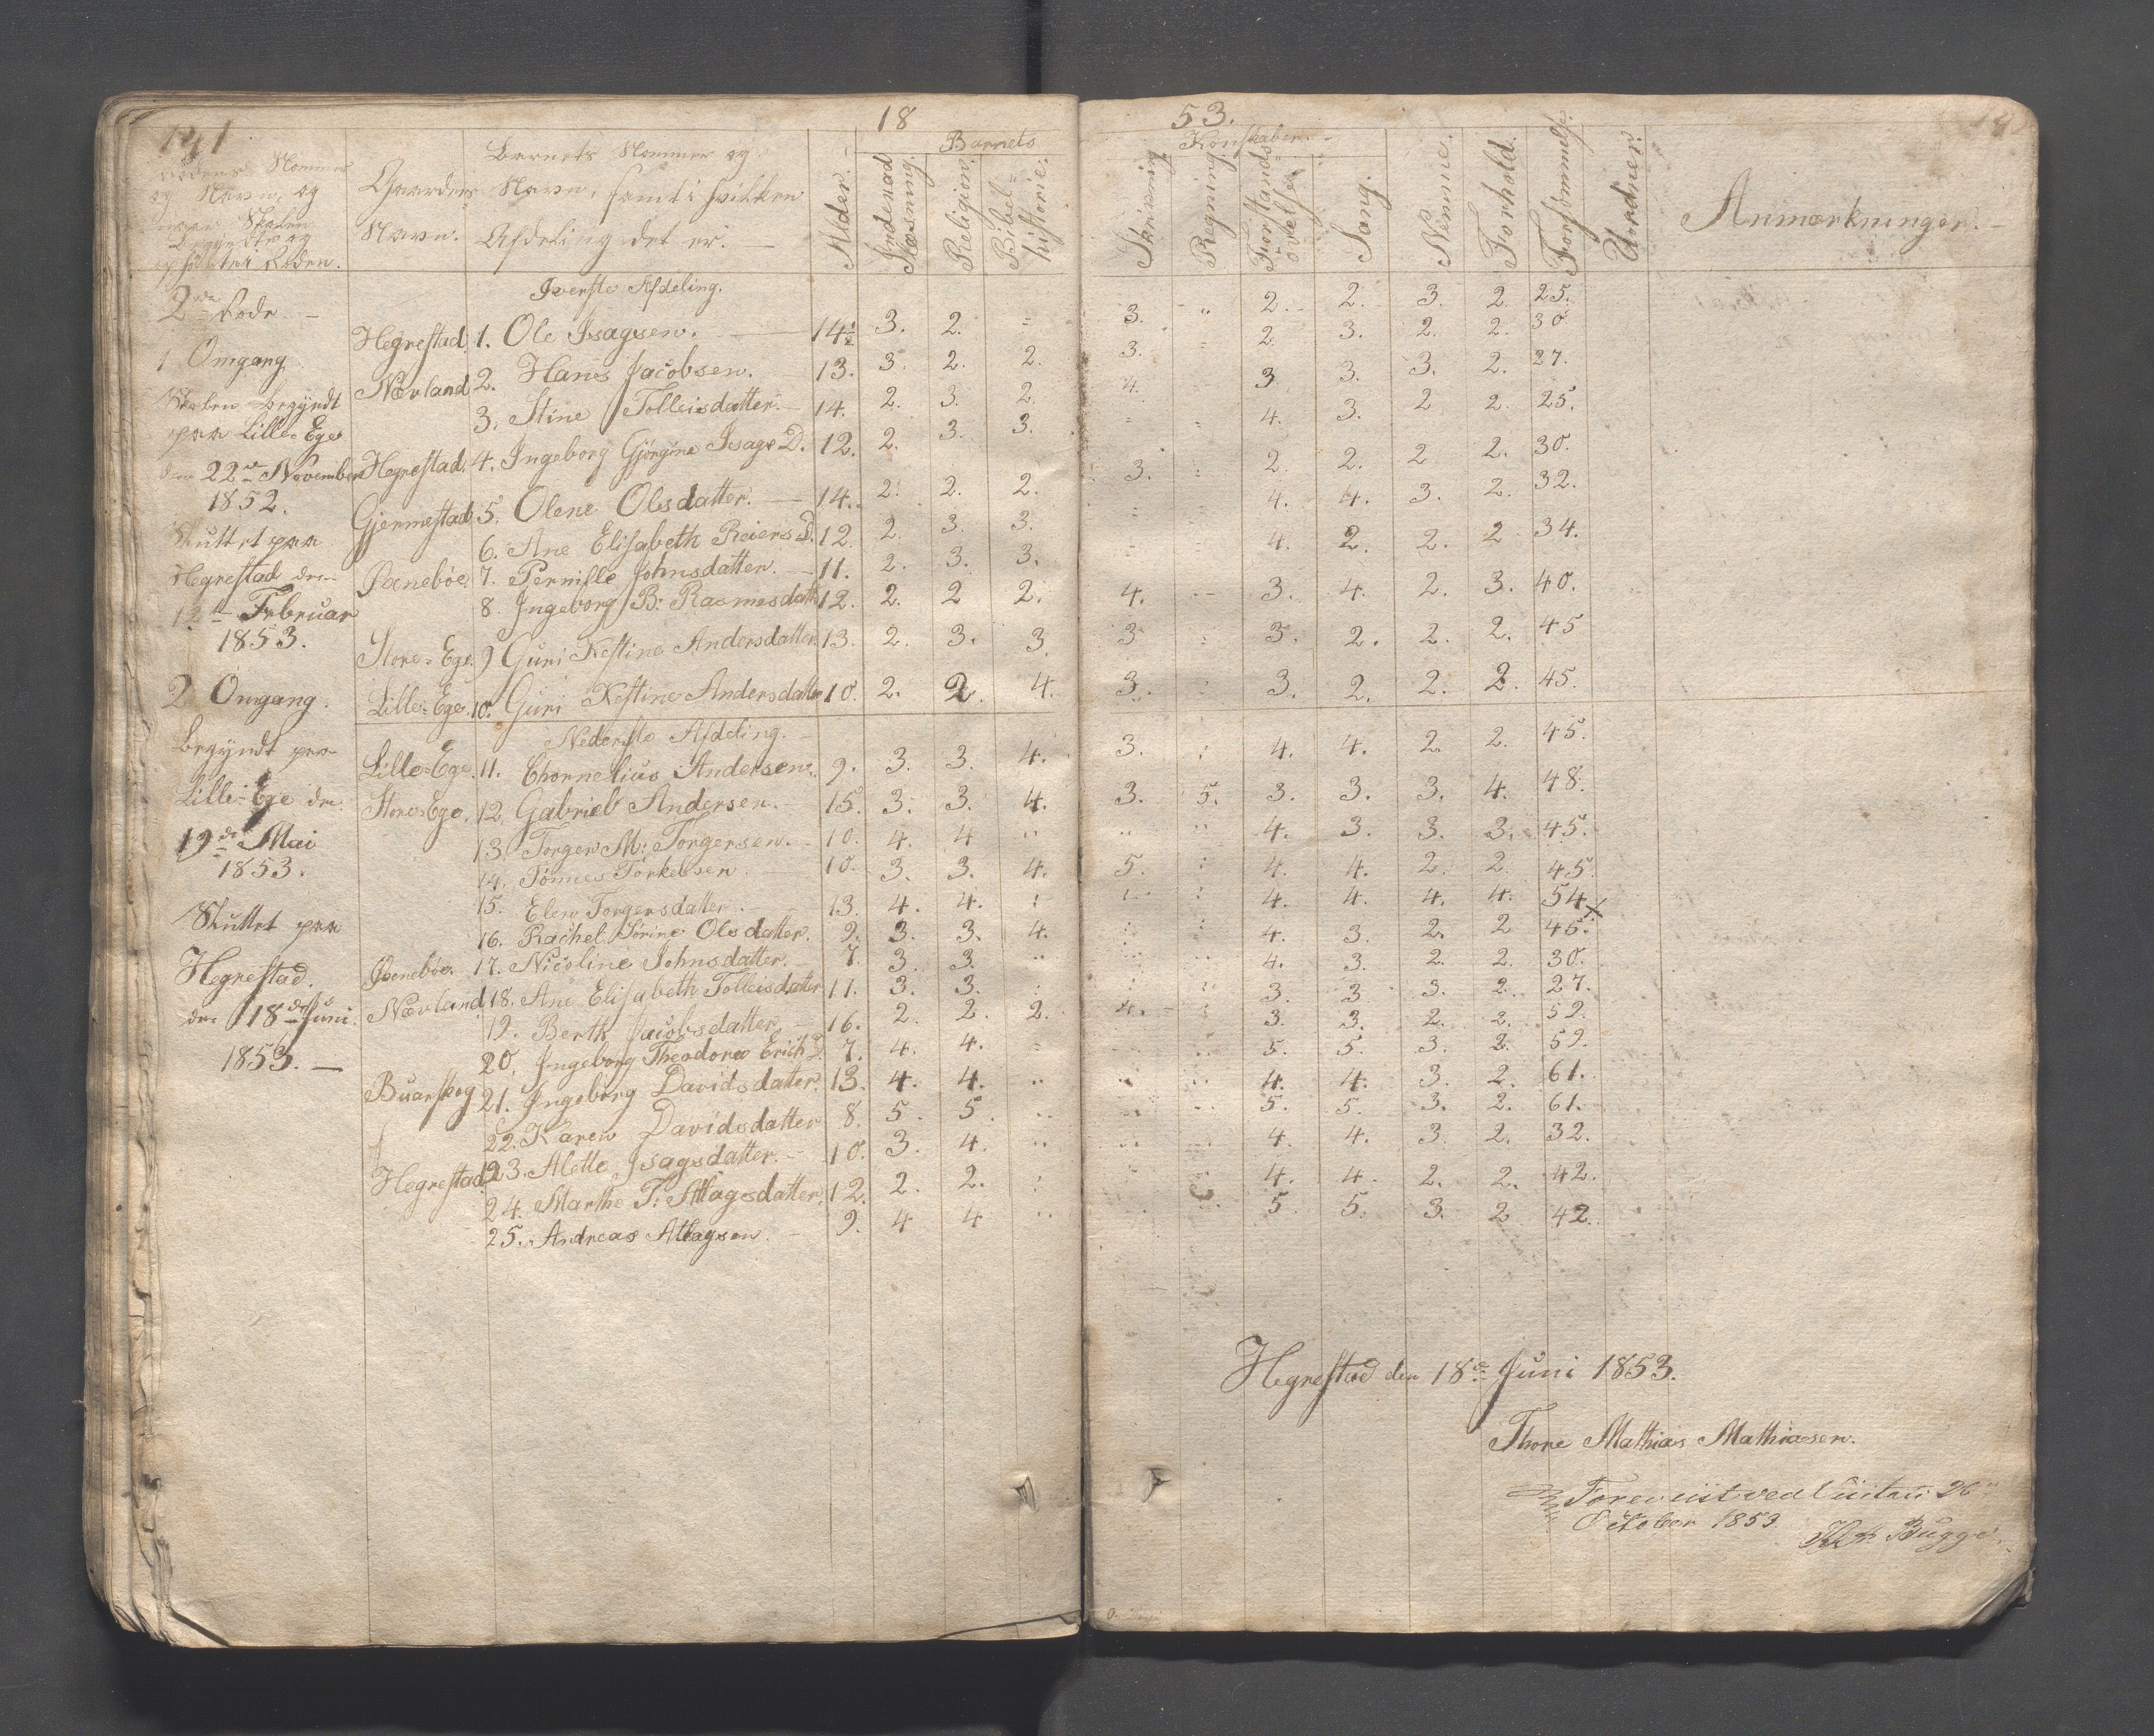 141
18
53.
Rodens Nommer og Navn, og naar Skolen begyndte og
Gaardens Navn.
Barnets Nommer og Navn, samt i hvilken Afdeling det er.
Alder.
Barnets
Kundskaber.
Indenad Læsning.
Religion.
Bibelhistorie.
Skrivning
Regning
Forstandsøvelse
Sang.
Nemme.
Forhold.
Forsømmelse.
Udordner.
Anmærkninger.
2den Rode.
1 Omgang
Skolen begyndt
paa Lille-Ege
den 22de November
1852.
Sluttet paa
Hegrestad den
12te Februar
1853.
2 Omgang.
Begyndt paa
Lille-Ege den
19de Mai
1853.
Sluttet paa
Hegrestad.
den 18de Juni.
1853.
Øverste Afdeling.
Hegrestad. 1. Ole Isagsen. 14½ 3. 2. = 3. " 2. 2. 3. 2. 25.
Nævland 2. Hans Jacobsen. 13. 3. 2. 2. 3. = 2. 3. 2. 2. 30.
3. Stine Tolleisdatter. 14. 2. 3. 2. 4. 3 3. 3. 2. 27.
Hegrestad. 4. Ingeborg Gjørgine Isags D. 12. 2. 3. 3. 4. 3. 2 2. 25.
Gjermestad 5. Olene Olsdatter. 14. 2. 2. 2. 3. 2. 2. 2 2. 30.
6. Ane Elisabeth Reiers D. 12. 2 3. 3. 4. 4. 3. 2. 32.
Øvenebøe. 7. Pernille Johnsdatter. 11. 2. 3. 3. 4. 2. 2. 2 34.
8. Ingeborg B: Rasmusdatt. 12. 2. 2 2. 4. 3. 4. 2. 3. 40.
Store-Ege. 9 Guri Kestine Andersdatter. 13. 2. 3. 3. 3 3. 2. 2. 2. 45
Lille-Ege. 10. Guri Kestine Andersdatter 10. 2. 2. 4. 3. 3. 2. 2. 2. 45.
Nederste Afdeling.
Lille-Ege. 11. Chornelius Andersen. 9. 3. 3. 4. 3. 4. 4. 2. 2. 45.
Store-Ege. 12. Gabriel Andersen. 15. 3. 3. 4. 3. 5. 3. 3. 3. 4. 48.
13. Torger M: Torgersen. 10. 4. 4 " " " 4. 3. 3. 3. 45.
14. Tønnes Torkelsen. 10. 3. 3. 4. 5. 4. 4. 2. 2 45.
15. Elen Torgersdatter. 13. 4. 4. 4. 4. 4. 4. 54
16. Rachel Sørine Olsdatter. 9. 3. 3. 4. 4. 3. 2. 2 45.
Øvenebøe. 17. Nicoline Johnsdatter. 7. 3. 3. 4. 3. 2. 2. 30.
Nævland 18. Ane Elisabeth Tolleisdatter 11. 3. 3. 3. 3 3. 2. 27.
19. Berth. Jacobsdatter. 16. 2. 2. 2. 4. 3. 3. 2. 2. 52.
20. Ingeborg Theodora Erich D. 7. 4. 4. 5. 5. 3. 2. 59.
Buarskog 21. Ingeborg Davidsdatter. 13. 4. 4. 4. 4. 3. 2. 61.
22. Karen Davidsdatter 8. 5. 5. 5. 5. 3. 2. 61.
Hegrestad. 23. Alette Isagsdatter. 10. 3. 4. 4. 4. 3. 2. 32.
24. Marthe T: Atlagsdatter. 12. 2. 2. 4. 4. 2. 2. 42.
25. Andreas Atlagsen. 9. 4 4 5. 5. 3. 2 42.
Hegrestad den 18de Juni 1853.
Thore Mathias Mathiasen.
Foreviist ved Visitats 26
October 1853.
Bugge.